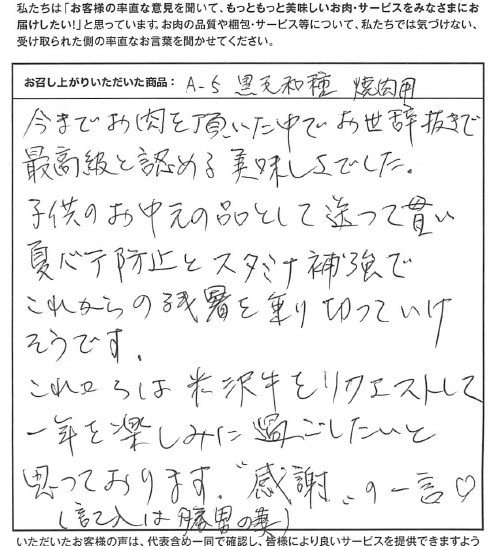 私たちは「お客様の率直な意見を聞いて、もっともっと美味しいお肉・サービスをみなさまにお
届けしたい！」と思っています。お肉の品質や梱包・サービス等について、私たちでは気づけない、
受け取られた側の率直なお言葉を聞かせてください。
お召し上がりいただいた商品： A-5 黒毛和種 焼肉用
今までお肉を頂いた中でお世辞抜きで
最高級と認める美味しさでした。
子供のお中元の品として送って貰い
夏バテ防止とスタミナ補強で
これからの残暑を乗り切っていけ
そうです。
これからは米沢牛をリクエストして
一年を楽しみに過ごしたいと
思っております。"感謝"の一言♡
(記入は勝男の妻)
いただいたお客様の声は、代表含め一同で確認し、皆様により良いサービスを提供できますよう